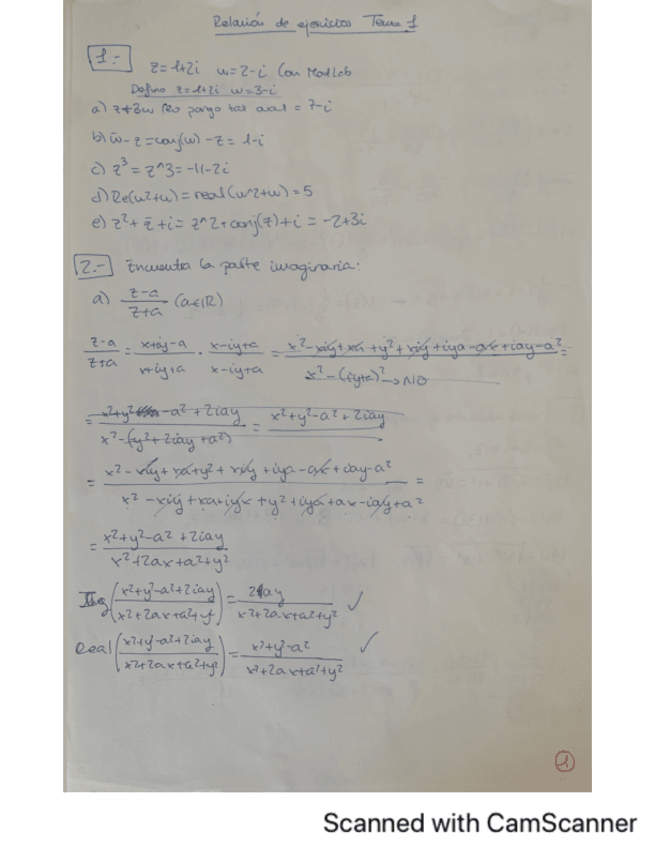 Relación de ejercicios Tema 1
1.-
z=1+2i w=2-i Con MatLab
Defino z=1+2i w=3-i
a) z+3w = 7-i
b) w̄-z=conj(w)-z = 1-i
c) z³ = z^3 = -11-2i
d) Re(w²+w) = real(w^2+w) = 5
e) z²+z̄+i = z^2+conj(z)+i = -2+3i
2.- Encuentra la parte imaginaria:
a) z-a/z+a (a∈ℝ)
z-a/z+a = x+iy-a/x+iy+a · x-iy+a/x-iy+a = x²-xiy+xa+y²+xiy+iya-ax+iay-a²/x²-(iy+a)² → NO =
= x²+y²-a²+2iay/x²-(y²+2iay+a²) = x²+y²-a²+2iay
= x²-xiy+xa+y²+xiy+iya-ax+iay-a²/x²-xiy+xa+iyx+y²+iya+ax-iay+a² =
= x²+y²-a²+2iay/x²+2ax+a²+y²
Img(x²+y²-a²+2iay/x²+2ax+a²+y²) = 2ay/x²+2ax+a²+y² ✓
Real(x²+y²-a²+2iay/x²+2ax+a²+y²) = x²+y²-a²/x²+2ax+a²+y² ✓
1
Scanned with CamScanner